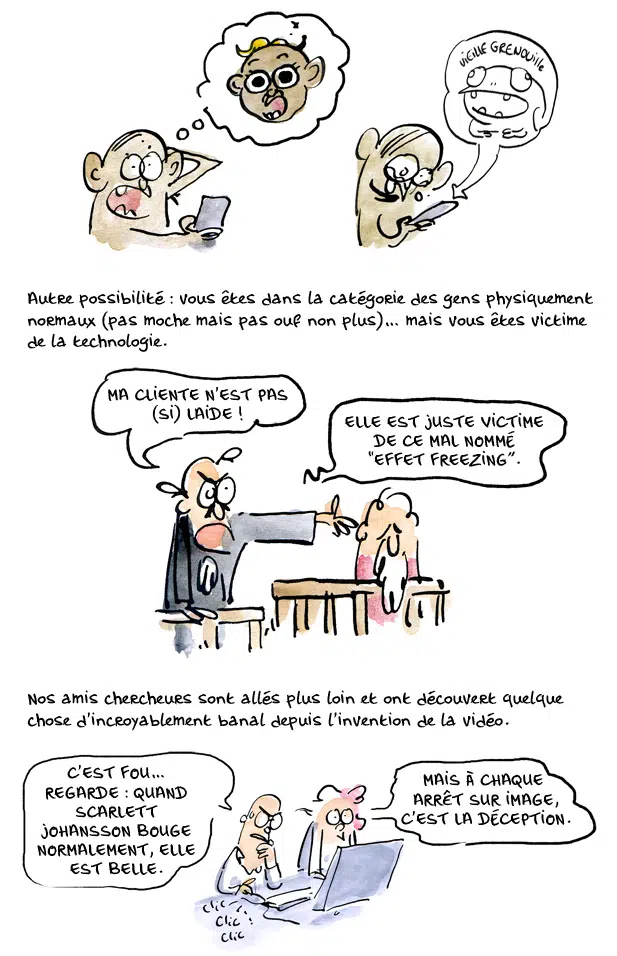 ViEiLLE GRENOUiLLE
Autre possibilité : vous êtes dans la catégorie des gens physiquement
normaux (pas moche mais pas ouf non plus)... mais vous êtes victime
de la technologie.
MA CLiENTE N'EST PAS
(Si) LAiDE !
ELLE EST jUSTE VICTiME
DE CE MAL NOMMÉ
"EFFET FREEZiNG".
Nos amis chercheurs sont allés plus loin et ont découvert quelque
chose d'incroyablement banal depuis l'invention de la vidéo.
C'EST FOU...
REGARDE : QUAND
SCARLETT
jOHANSSON BOUGE
NORMALEMENT, ELLE
EST BELLE.
MAiS À CHAQUE
ARRÊT SUR iMAGE,
C'EST LA DÉCEPTiON.
Clic
Clic
Clic